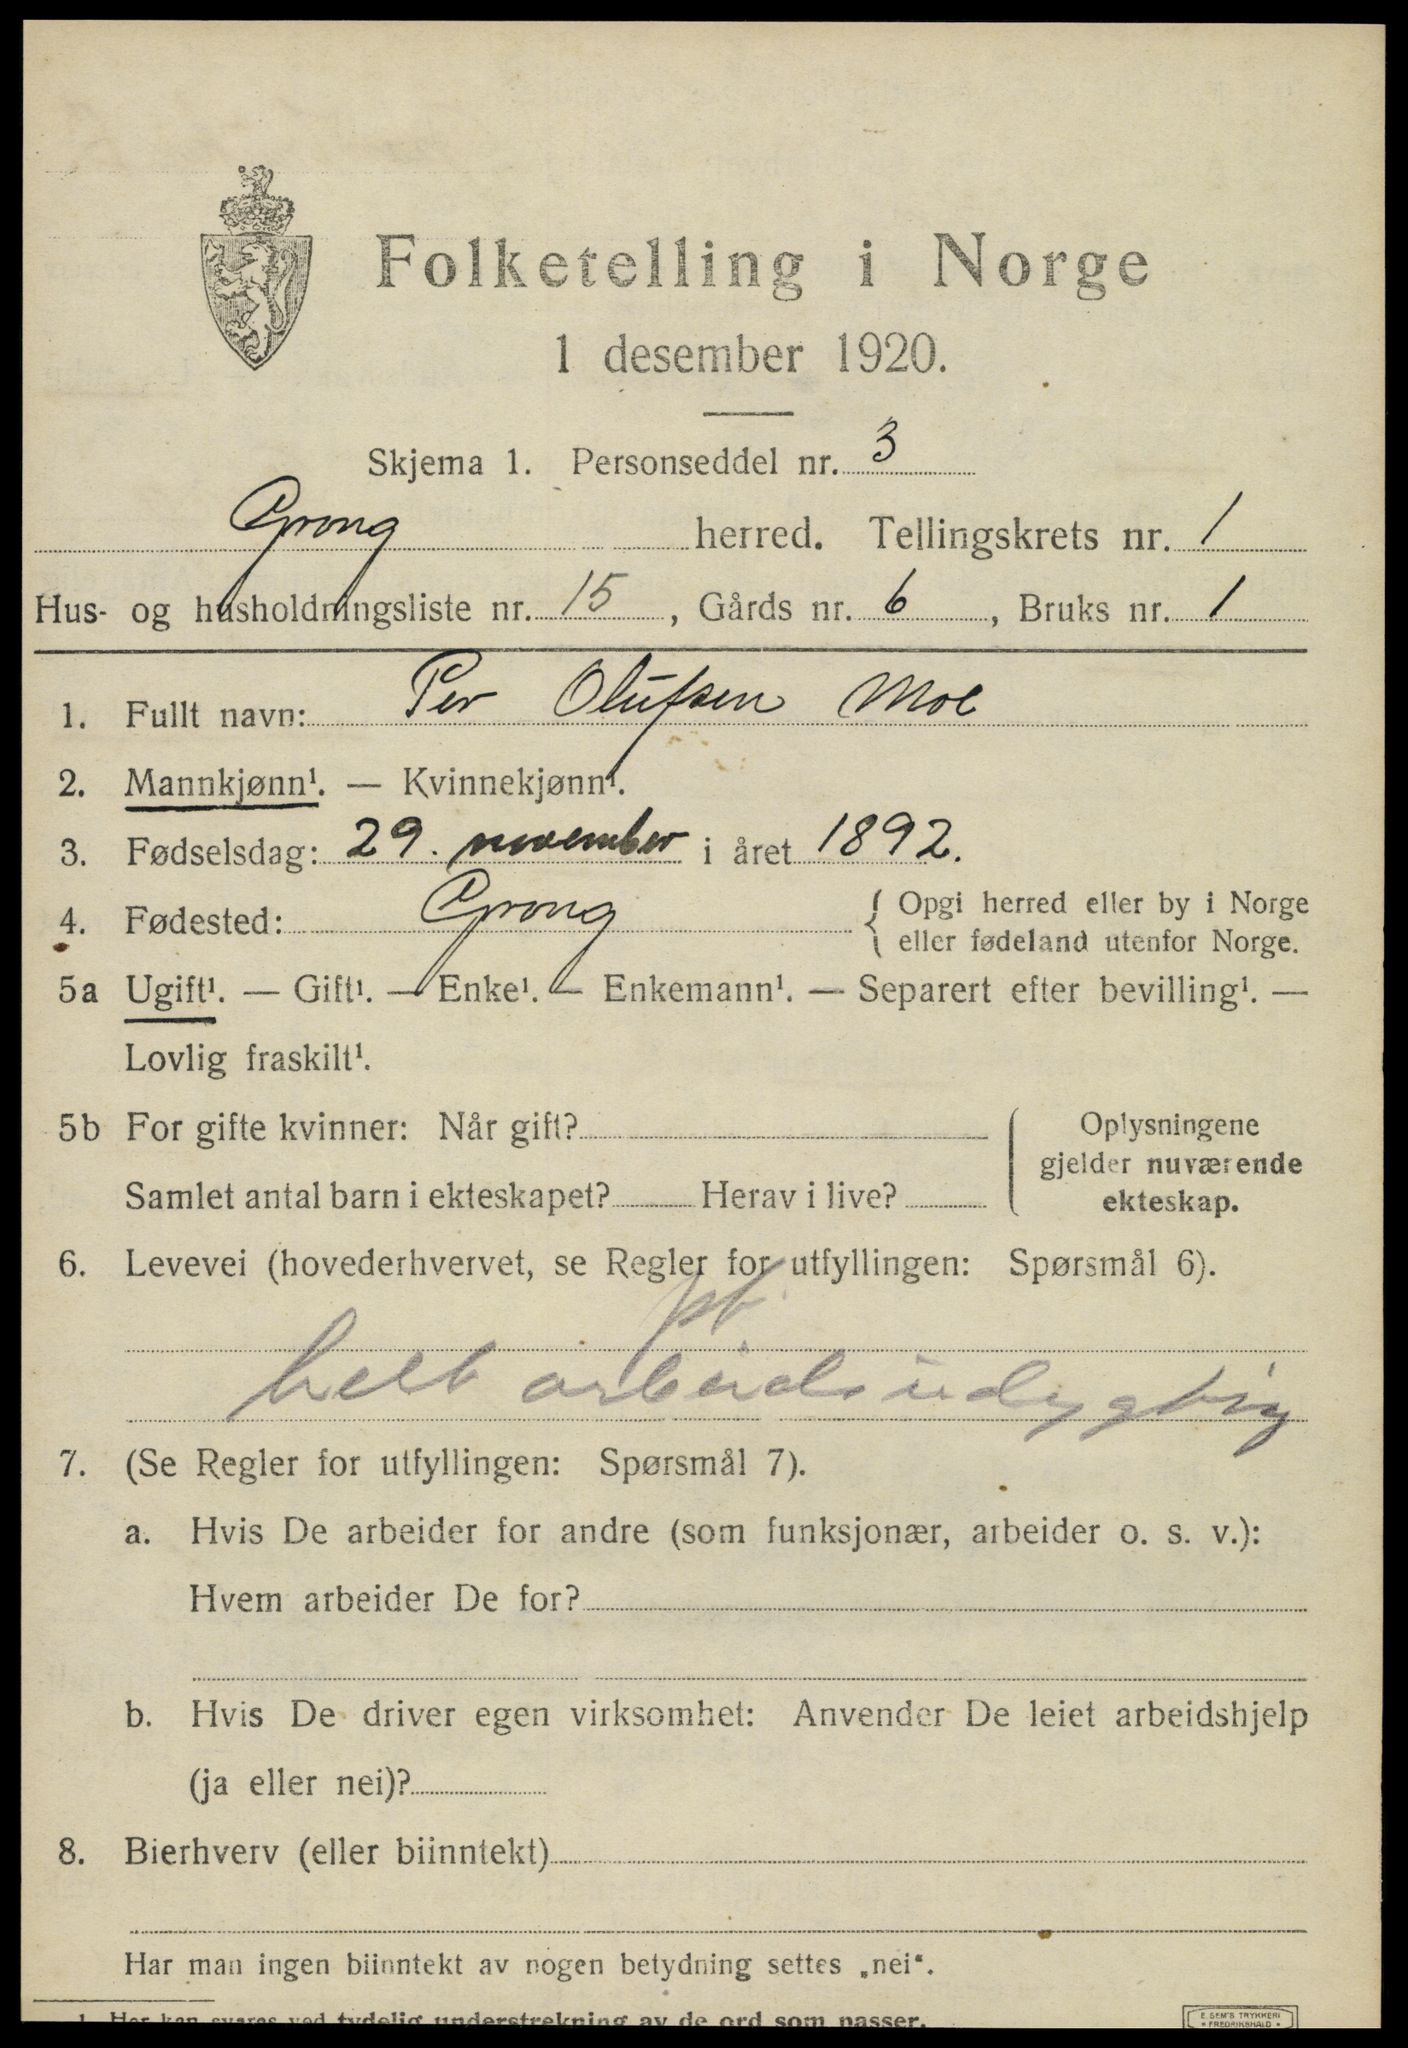 Folketelling i Norge
1 desember 1920.
Skjema 1. Personseddel nr. 3
Grong herred. Tellingskrets nr. 1
Hus- og husholdningsliste nr. 15, Gårds nr. 6, Bruks nr. 1
1. Fullt navn: Per Olufsen Moe
2. Mannkjønn¹. — Kvinnekjønn¹.
3. Fødselsdag: 29. november i året 1892.
4. Fødested: Grong { Opgi herred eller by i Norge
eller fødeland utenfor Norge.
5a Ugift¹. — Gift¹. — Enke¹. — Enkemann¹. — Separert efter bevilling¹. —
Lovlig fraskilt¹.
5b For gifte kvinner: Når gift? Oplysningene
gjelder nuværende
Samlet antal barn i ekteskapet? Herav i live? ekteskap.
6. Levevei (hovederhvervet, se Regler for utfyllingen: Spørsmål 6).
helt arbeidsudygtig
7. (Se Regler for utfyllingen: Spørsmål 7).
a. Hvis De arbeider for andre (som funksjonær, arbeider o. s. v.):
Hvem arbeider De for?
b. Hvis De driver egen virksomhet: Anvender De leiet arbeidshjelp
(ja eller nei)?
8. Bierhverv (eller biinntekt)
Har man ingen biinntekt av nogen betydning settes „nei“.
1. Her kan svares ved tydelig understrekning av de ord som passer.
E. SEM'S TRYKKERI
* FREDRIKSHALD *